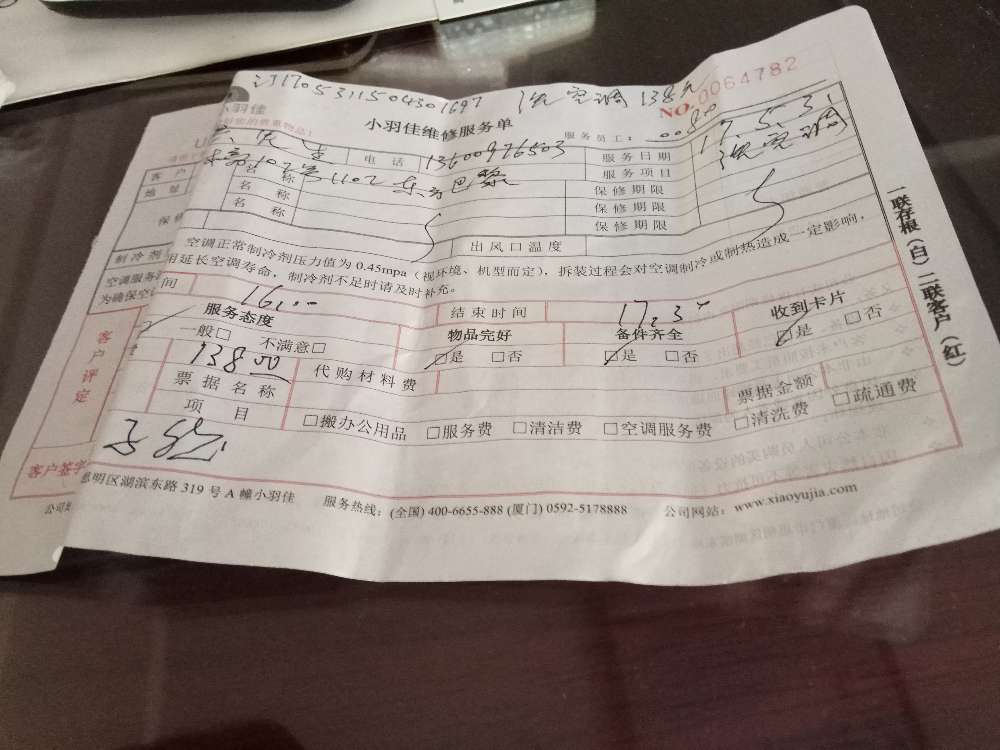 订1705311504301697 洗空调 138元
NO.0064782
小羽佳
小羽佳维修服务单
服务员工：
电话 13600976503 服务日期 17.5.31
服务项目 洗空调
客户
地址 102号1102 东方巴黎
名称 保修期限
名称 保修期限
名称 保修期限
保修
制冷剂
出风口温度
空调服务
空调正常制冷剂压力值为 0.45mpa（视环境、机型而定），拆装过程会对空调制冷或制热造成一定影响，
为确保空
用延长空调寿命，制冷剂不足时请及时补充。
间 16:00 结束时间 17:30
客户评定
服务态度 物品完好 备件齐全 收到卡片
一般□ 不满意□ □是 □否 □是 □否 □是 □否
138.00 代购材料费
票据名称 票据金额
项目 □搬办公用品 □服务费 □清洁费 □空调服务费 □清洗费 □疏通费
客户签字
思明区湖滨东路 319 号 A 幢小羽佳 服务热线：(全国) 400-6655-888 (厦门) 0592-5178888 公司网站：www.xiaoyujia.com
一联存根（白）二联客户（红）